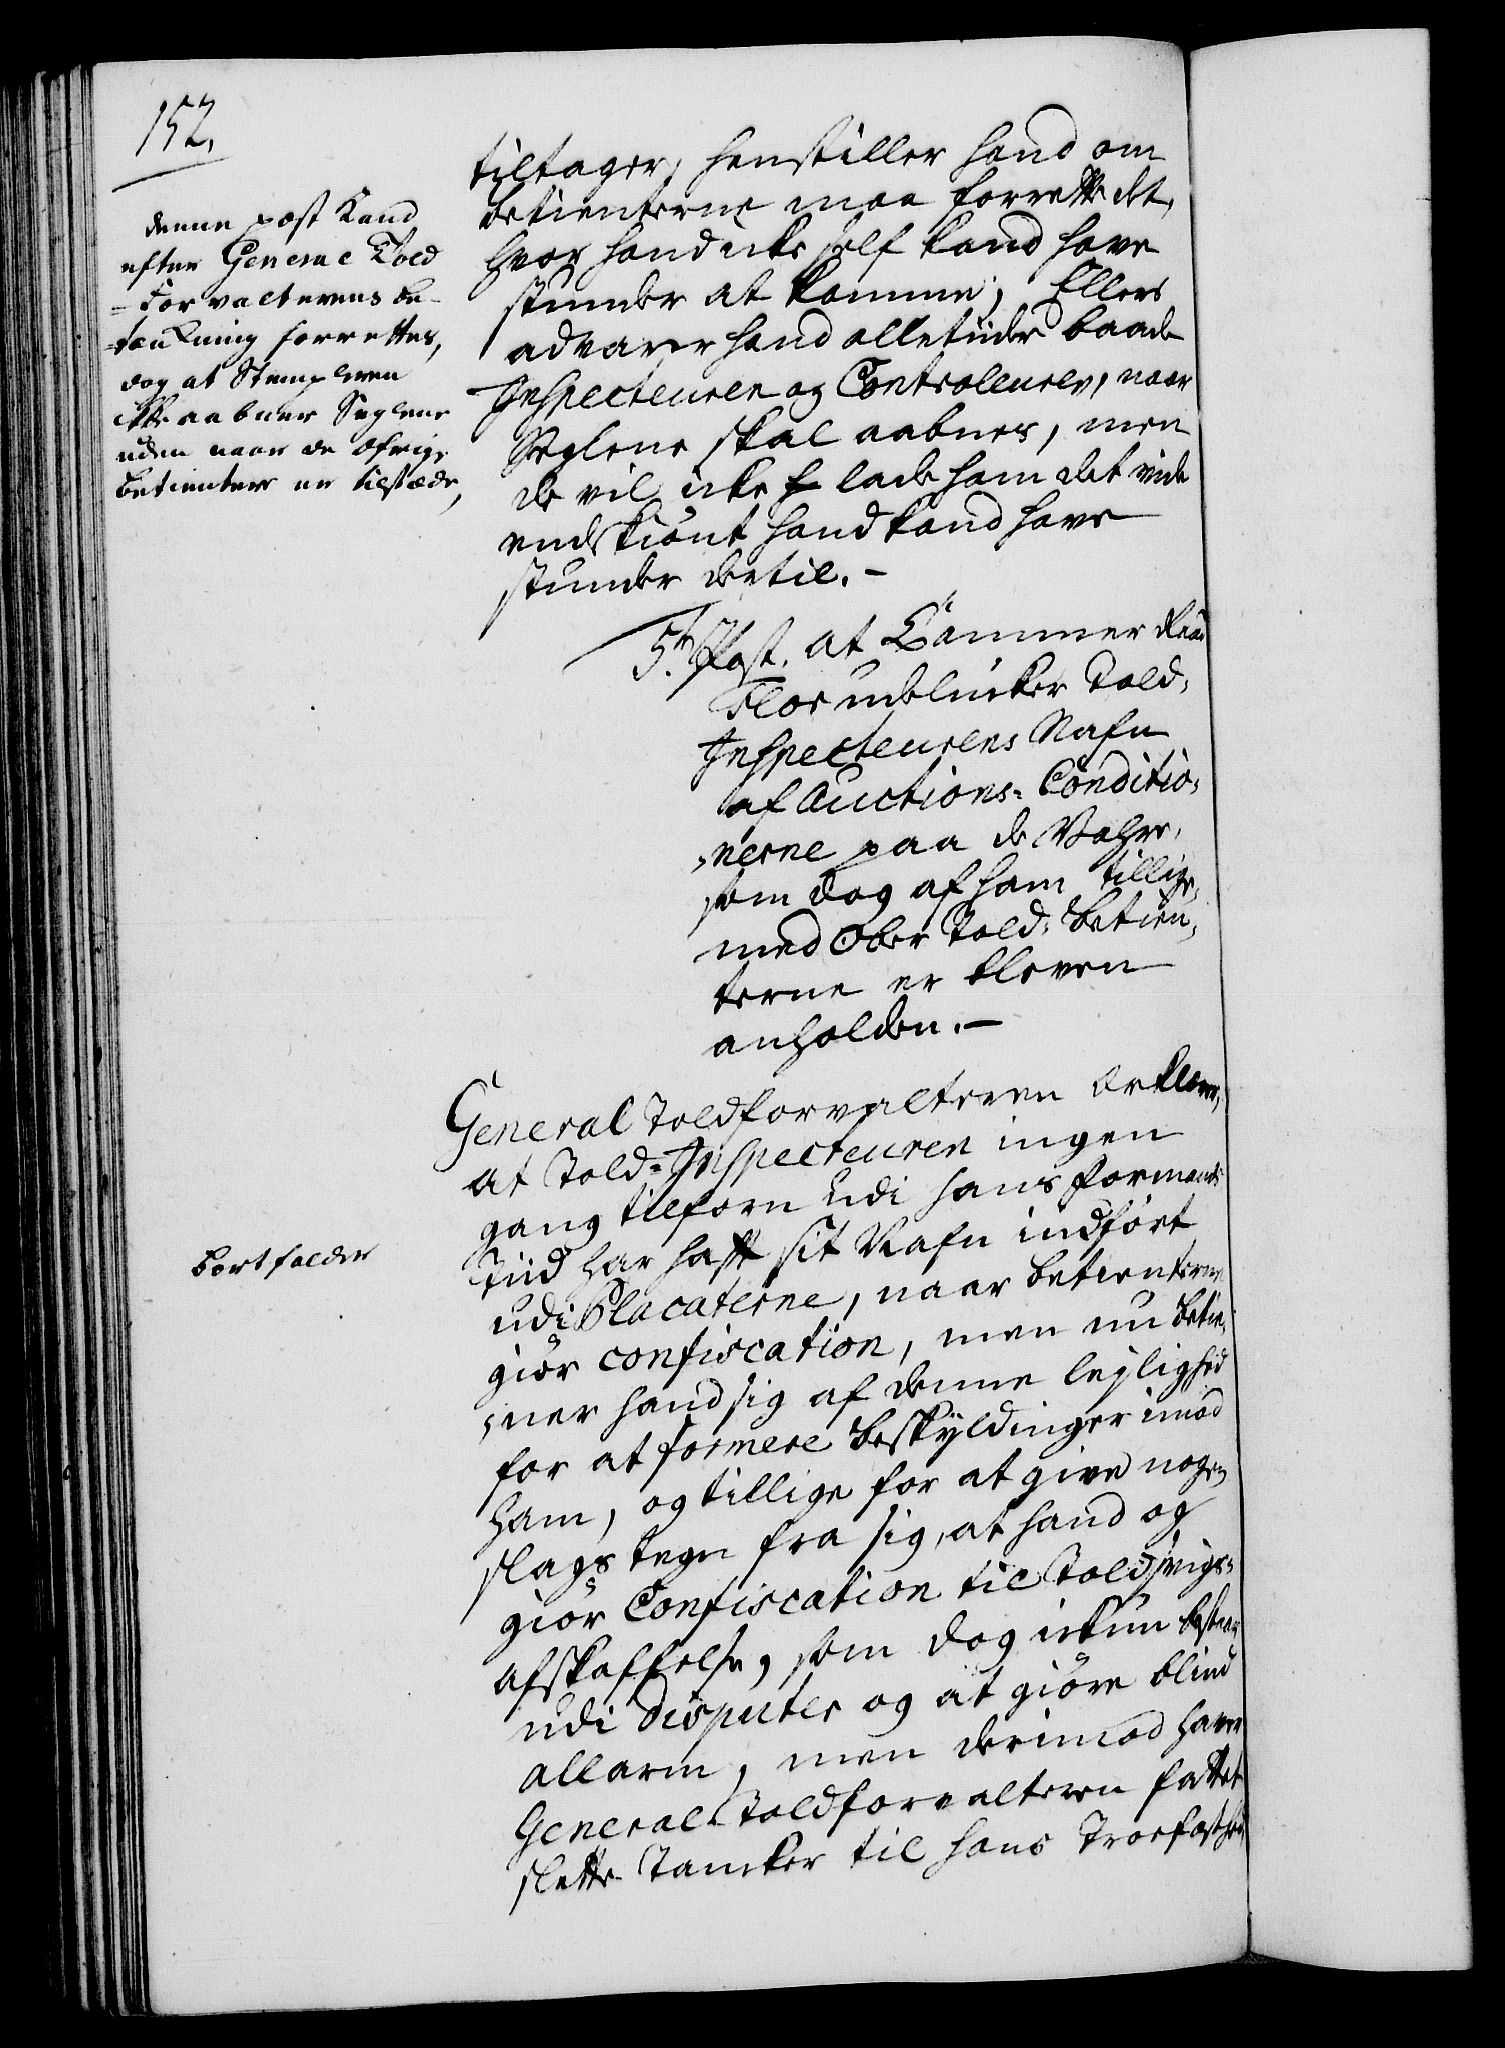 152.
denne post Kand
efter General Told
-Forvalterens be-
-tænkning forrettes,
dog at Stempleren
icke aabner Seglene
uden naar de øfrige
betienter er tilstæde,
tiltager, henstiller hand om
betienterne maa forrette det,
hvor hand icke self kand have
stunder at komme; Ellers
advarer hand alletiider baade
Inspecteuren og Controleuren, naar
Seglene skal aabnes, men
de vil icke lade ham det vide
endskiønt hand kand have
stunder dertil.-
5te Post. at Cammer Raad
Flor udelucker Told-
Inspecteurens Nafn
af Auctions-Conditio-
-nerne paa de Vahre,
som dog af ham tillige-
med Ober Told-Betien-
terne er bleven
anholden.-
General Toldforvalteren erklærer,
at Told-Inspecteuren ingen
gang tilforn udi hans formands
Tiid har hafft sit Nafn indført
udi Placaterne, naar betienterne
giør confiscation, men nu betie-
-ner hand sig af denne lejlighed
for at formere beskyldinger imod
ham, og tillige for at give nogen
slags tegn fra sig, at hand og
giør Confiscation til Toldsvigs-
afskaffelse, som dog ickun bestaar
udi disputer og at giøre blind
allarm, men derimod haver
General Toldforvalteren fattet
slette Tancker til hans Troefasthed
bortfalder